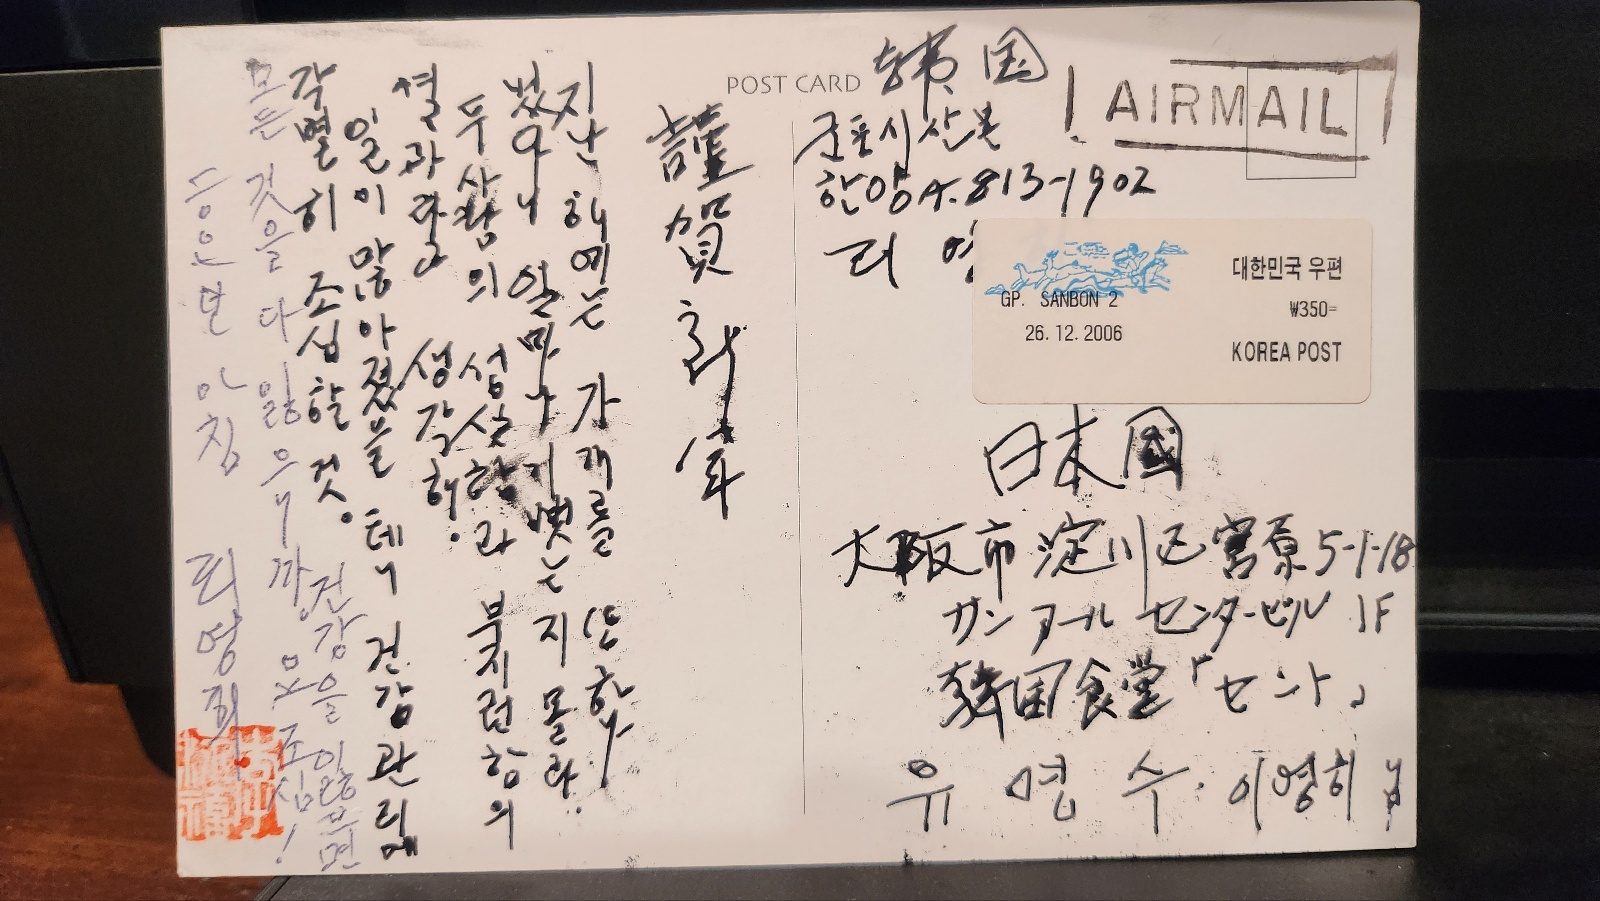 POST CARD
謹賀新年
지난 해에는 가게를 산하
였으니 얼마나 기뻤는지 몰라.
두 사람의 성실함과 부지런함의
결과라고 생각해.
일이 많아졌을 테니 건강관리에
각별히 조심할 것.
건강을 잃으면
모든 것을 다 잃으니까. 요 조심!
동운모 아침 리영희
韩国
군포시 산본
한양A. 813-1902
리 영
AIRMAIL
GP. SANBON 2
26.12.2006
대한민국 우편
₩350=
KOREA POST
日本國
大阪市淀川区宮原5-1-18
サンアールセンタービル 1F
韓国食堂「セント」
유영수·이영희 님